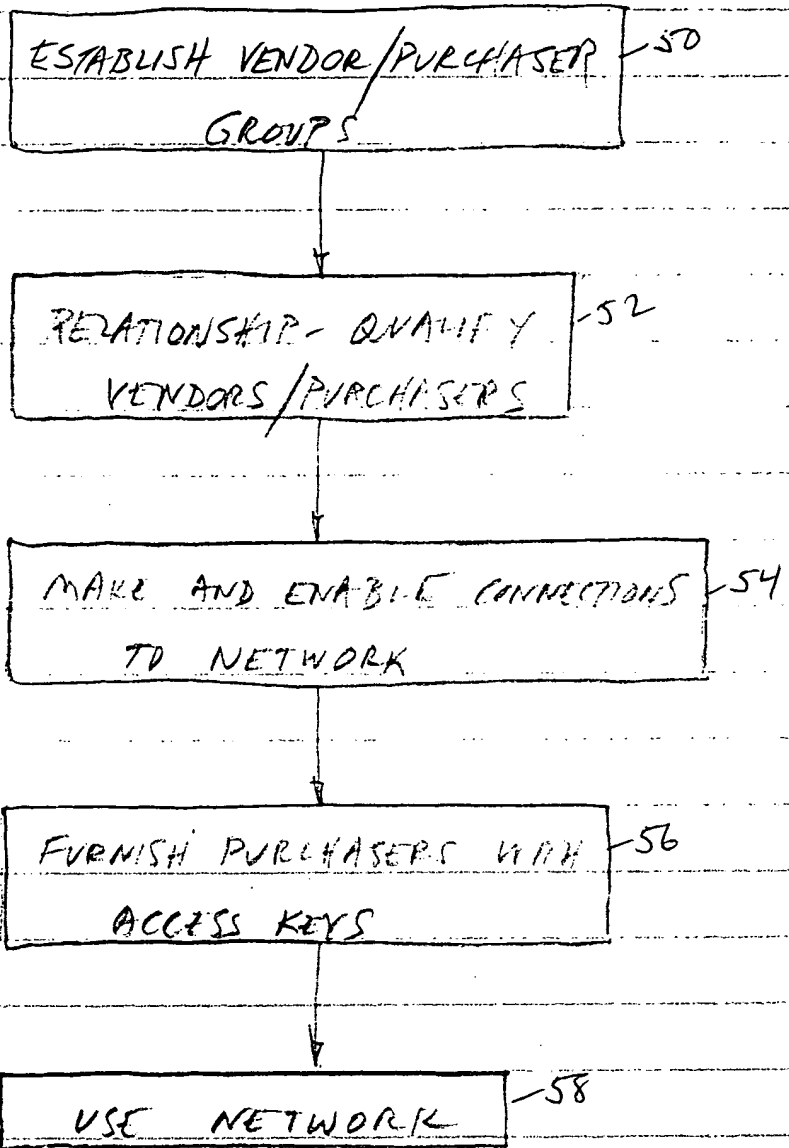 ESTABLISH VENDOR/PURCHASER 50
GROUPS
RELATIONSHIP-QUALIFY 52
VENDORS/PURCHASERS
MAKE AND ENABLE CONNECTIONS 54
TO NETWORK
FURNISH PURCHASERS WITH 56
ACCESS KEYS
USE NETWORK 58